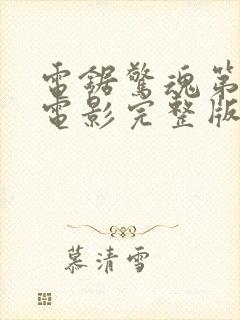 電鋸驚魂第
電影完整版
慕清雪